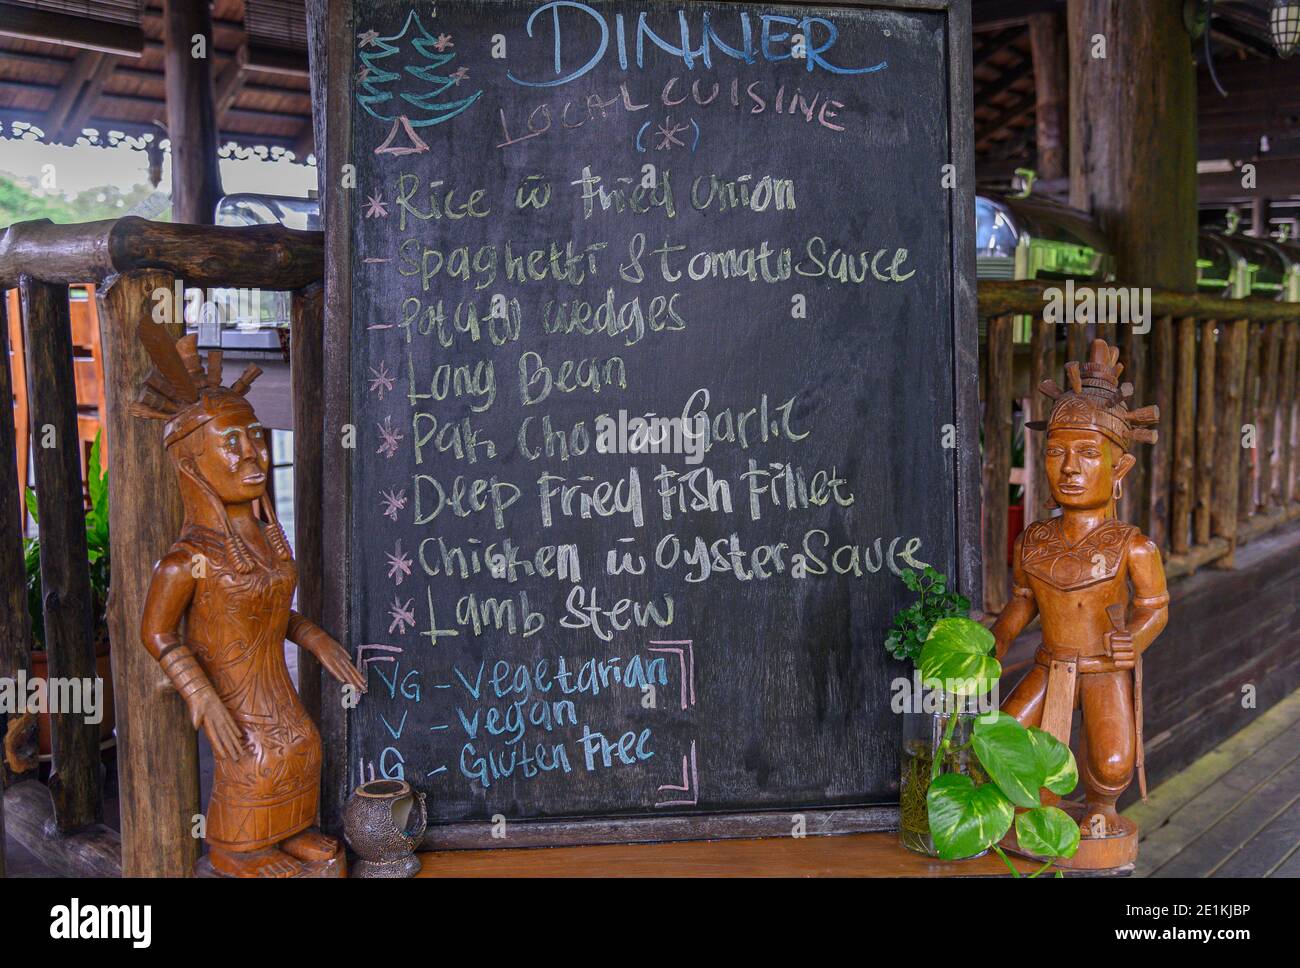 DINNER
LOCAL CUISINE
(*)
* Rice w̄ Fried Onion
- Spaghetti & Tomato Sauce
- Potato Wedges
* Long Bean
* Pak Choi w̄ Garlic
* Deep Fried Fish Fillet
* Chicken w̄ Oyster Sauce
* Lamb Stew
VG - Vegetarian
V - Vegan
G - Gluten Free
alamy
Image ID: 2E1KJBP
www.alamy.com